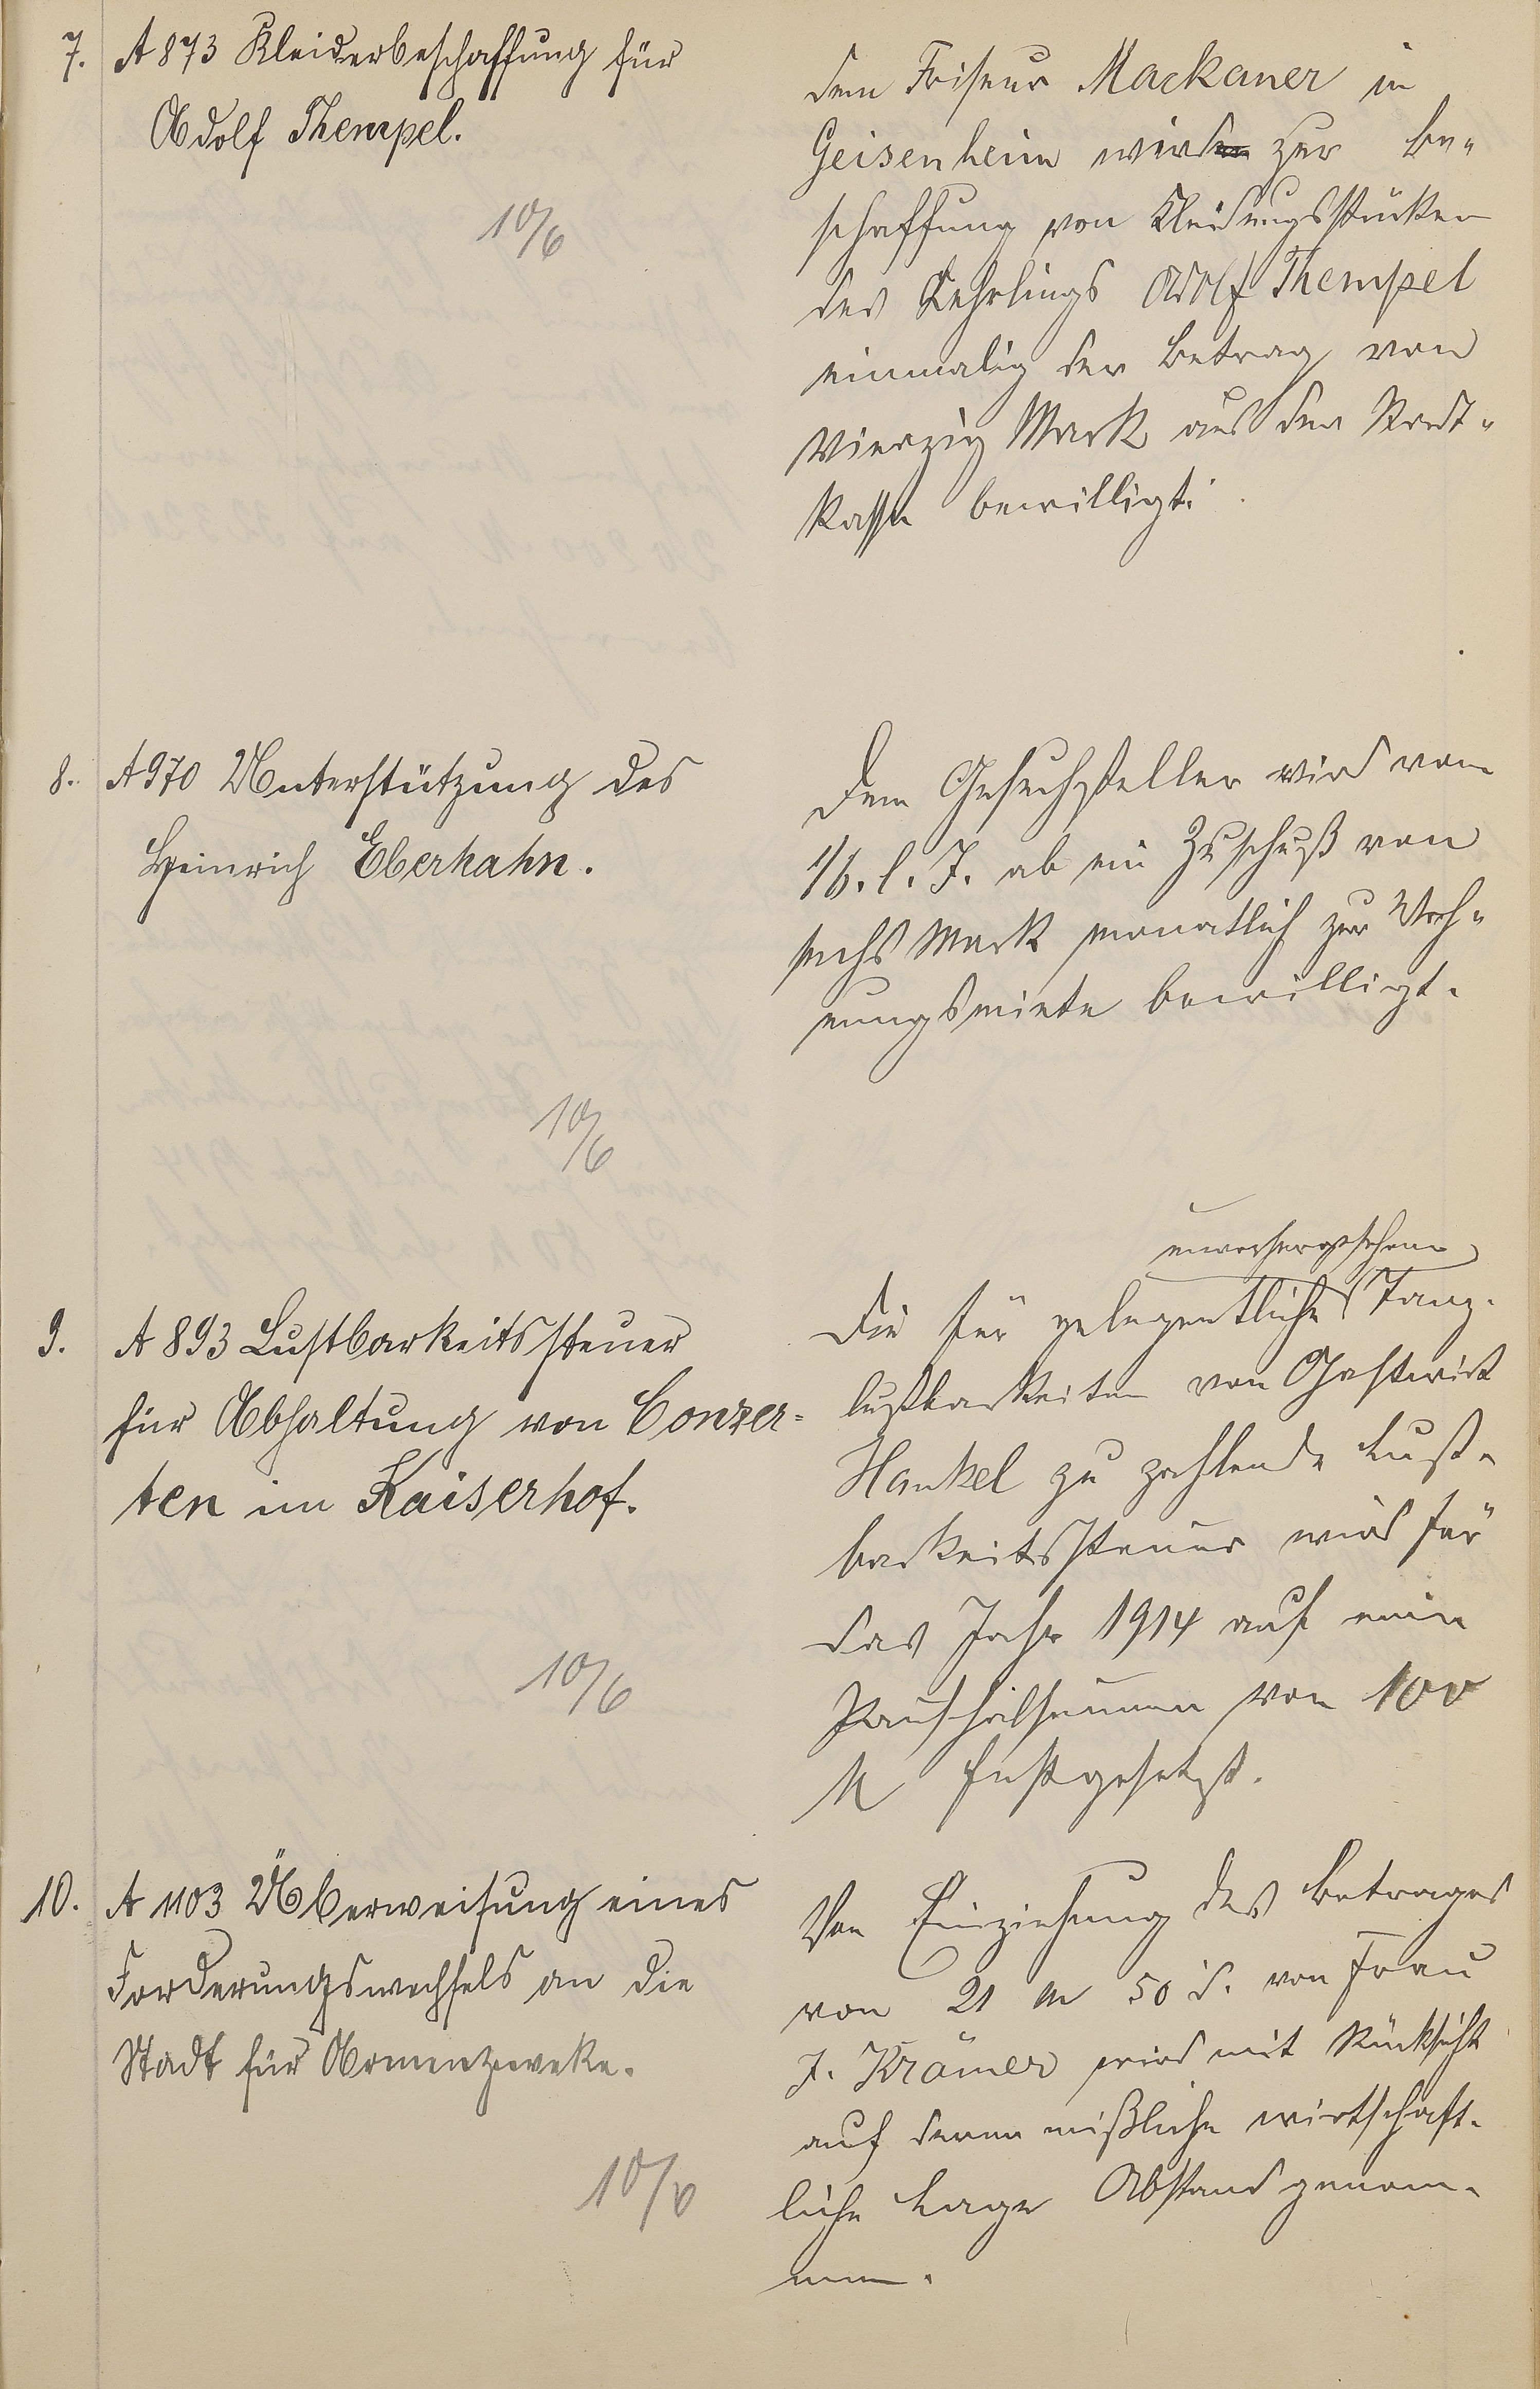 7. A 873 Kleiderbeschaffung für
Adolf Thempel.
10/6
dem Friseur Mackauer in
Geisenheim wird zur Be-
schaffung von Kleidungsstücken
des Lehrlings Adolf Thempel
einmalig der Betrag von
vierzig Mark aus der Stadt-
kasse bewilligt.
8. A 970 Unterstützung des
Heinrich Eberhahn.
10/6
Dem Gesuchsteller wird vom
1/6. l. J. ab ein Zuschuß von
sechs Mark monatlich zur Woh-
nungsmiete bewilligt.
9. A 893 Lustbarkeitssteuer
für Abhaltung von Conzer-
ten im Kaiserhof.
10/6
unvorhergesehene
Die für gelegentliche Tanz-
lustbarkeiten von Gastwirt
Hankel zu zahlende Lust-
barkeitssteuer wird für
das Jahr 1914 auf eine
Pauschalsumme von 100
M festgesetzt.
10. A 1103 Überweisung eines
Forderungswechsels an die
Stadt für Armenzwecke.
10/6
Von Einziehung des Betrages
von 21 M 50 d. von Frau
J. Krämer wird mit Rücksicht
auf deren mißliche wirtschaft-
liche Lage Abstand genom-
men.